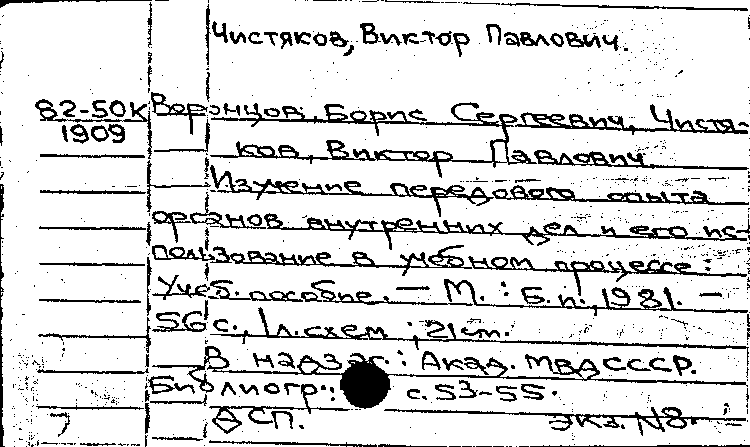 Чистяков, Виктор Павлович.
82-50к Воронцов, Борис Сергеевич, Чистя-
1909
ков, Виктор Павлович
Изучение передового опыта
органов внутренних дел и его ис-
пользование в учебном процессе:
Учеб. пособие. — М. : Б.и., 1981. —
56 с., 1 л. схем ; 21 см.
В надзаг.: Акад. МВД СССР.
Библиогр.: с. 53-55.
ДСП. экз. №8.